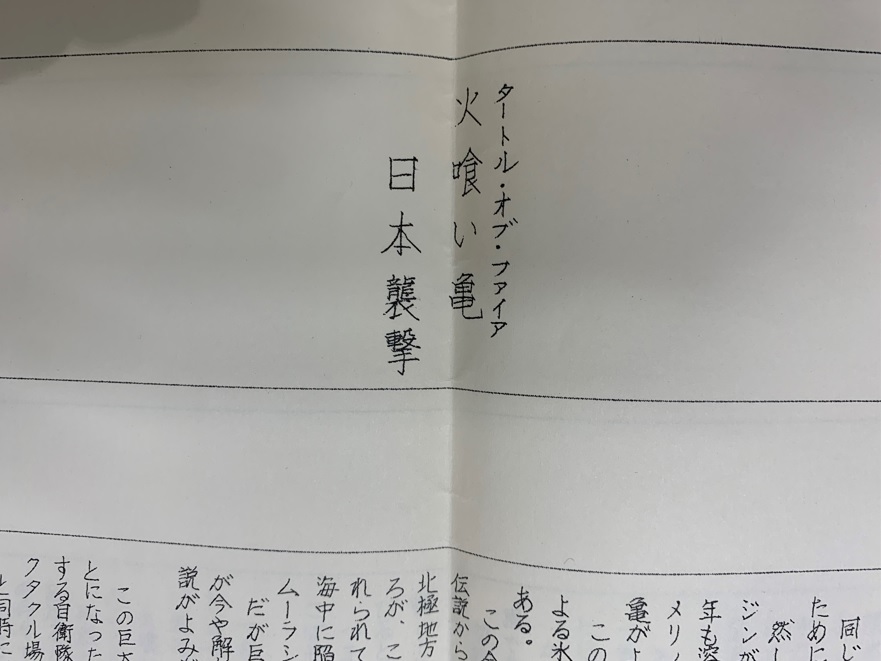 タートル・オブ・ファイア
火喰い亀
日本襲撃
同じ
ために
然し
ジンが
年も深
メリ
亀がよ
この
よる氷
ある。
この
伝説から
北極地方
ろが、こ
れられて
海中に陥
ムーラシ
だが巨
が今や解
説がよみが
この巨大
とになった
する自衛隊
クタクル場
と同時に